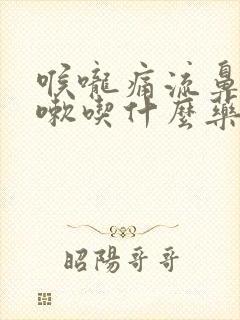 喉嚨痛流鼻
嗽喫什麼藥
昭陽哥哥